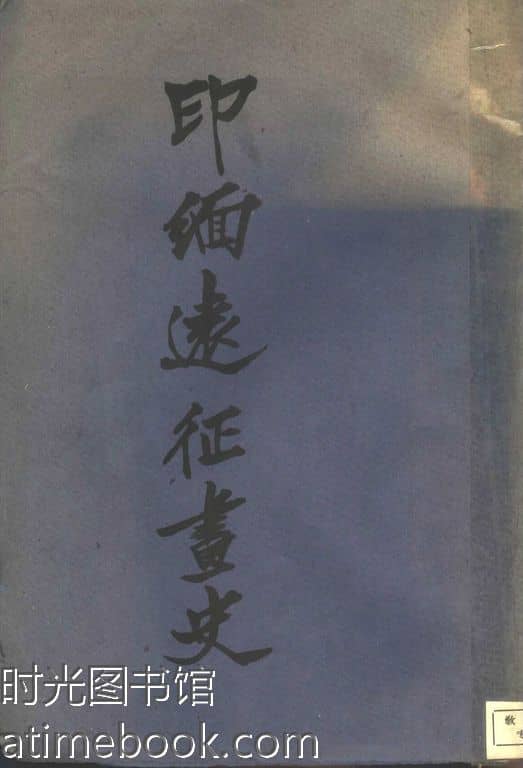 印緬遠征畫史
时光图书馆
atimebook.com